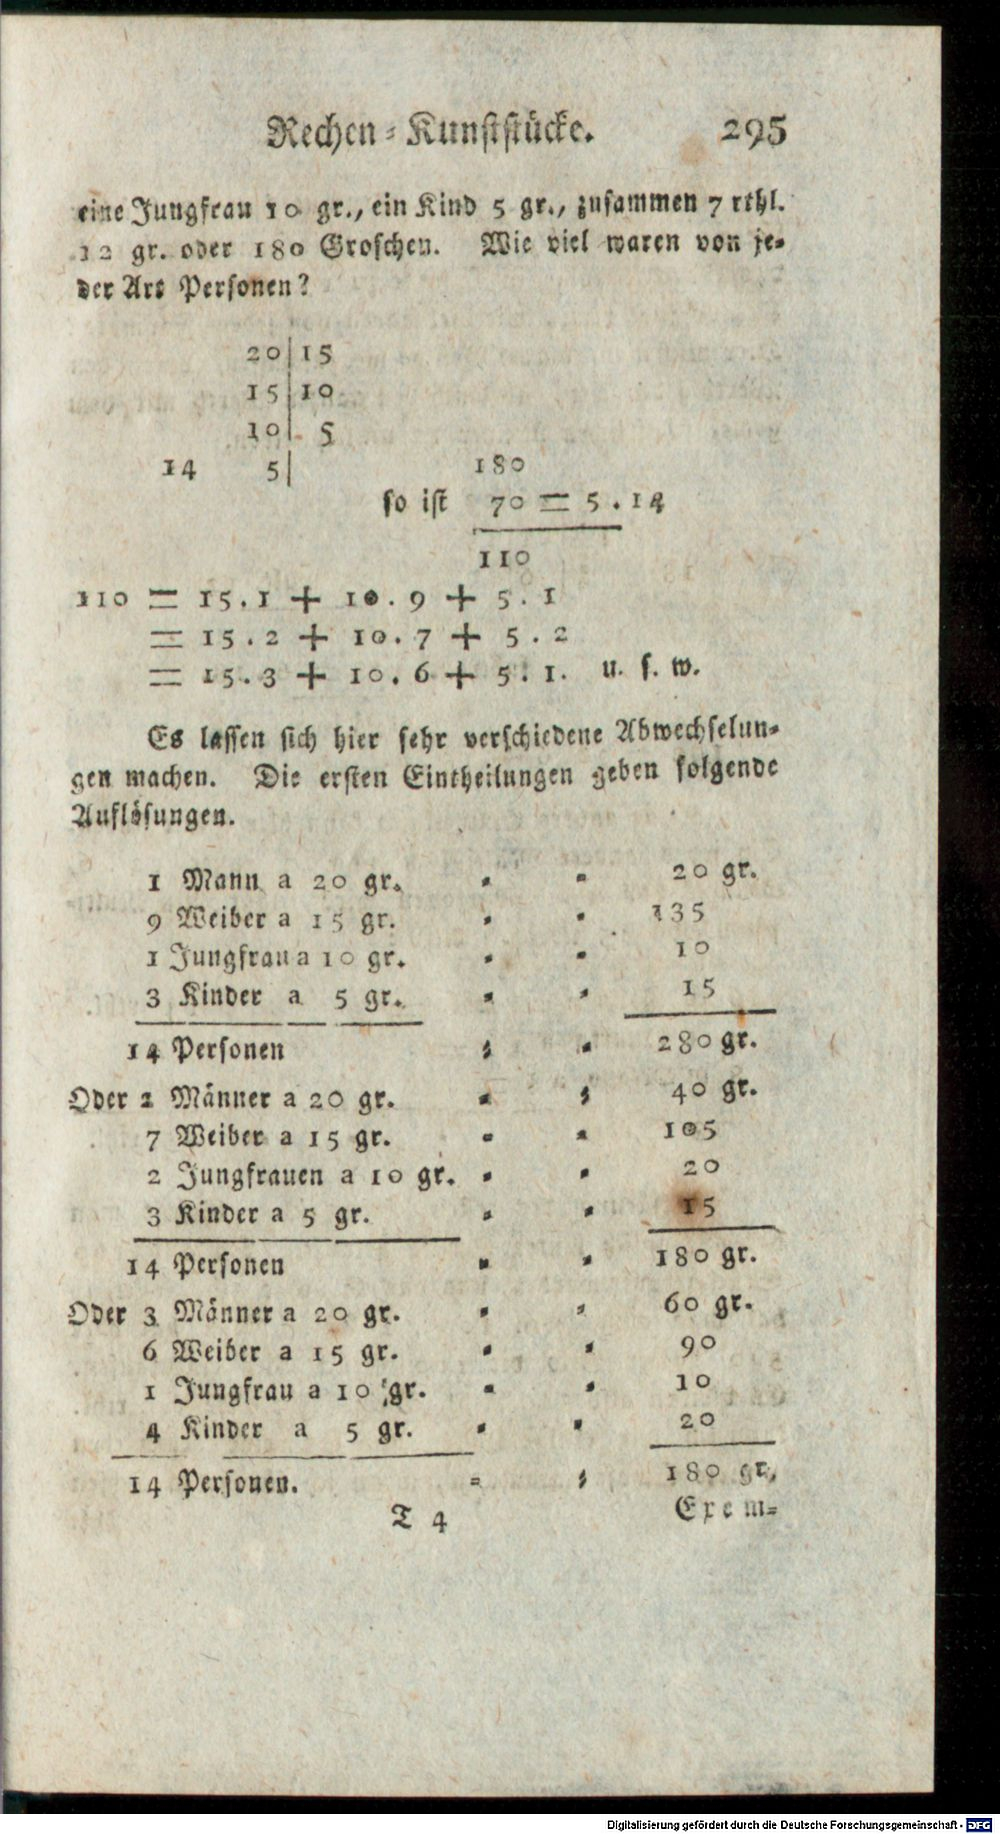 Rechen-Kunststücke. 295
eine Jungfrau 10 gr., ein Kind 5 gr., zusammen 7 rthl.
12 gr. oder 180 Groschen. Wie viel waren von je-
der Art Personen?
20|15
15|10
10| 5
14 5| 180
so ist 70 = 5.14
110
110 = 15.1 + 10.9 + 5.1
= 15.2 + 10.7 + 5.2
= 15.3 + 10.6 + 5.1. u. s. w.
Es lassen sich hier sehr verschiedene Abwechselun-
gen machen. Die ersten Eintheilungen geben folgende
Auflösungen.
1 Mann a 20 gr. - - 20 gr.
9 Weiber a 15 gr. - - 135
1 Jungfrau a 10 gr. - - 10
3 Kinder a 5 gr. - - 15
14 Personen - - 280 gr.
Oder 2 Männer a 20 gr. - - 40 gr.
7 Weiber a 15 gr. - - 105
2 Jungfrauen a 10 gr. - - 20
3 Kinder a 5 gr. - - 15
14 Personen - - 180 gr.
Oder 3 Männer a 20 gr. - - 60 gr.
6 Weiber a 15 gr. - - 90
1 Jungfrau a 10 gr. - - 10
4 Kinder a 5 gr. - - 20
14 Personen. - - 180 gr.
T 4 Exem-
Digitalisierung gefördert durch die Deutsche Forschungsgemeinschaft - DFG